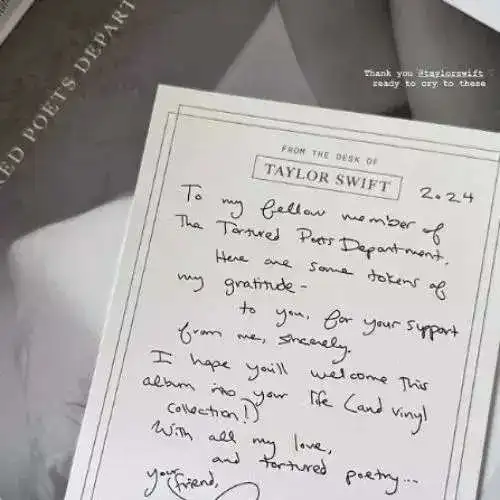 RED POETS DEPART
Thank you @taylorswift
ready to cry to these
FROM THE DESK OF
TAYLOR SWIFT
2024
To my fellow member of
The Tortured Poets Department.
Here are some tokens of
my gratitude -
to you, for your support
from me, sincerely.
I hope you'll welcome this
album into your life (and vinyl
collection!)
With all my love,
and tortured poetry...
your friend,